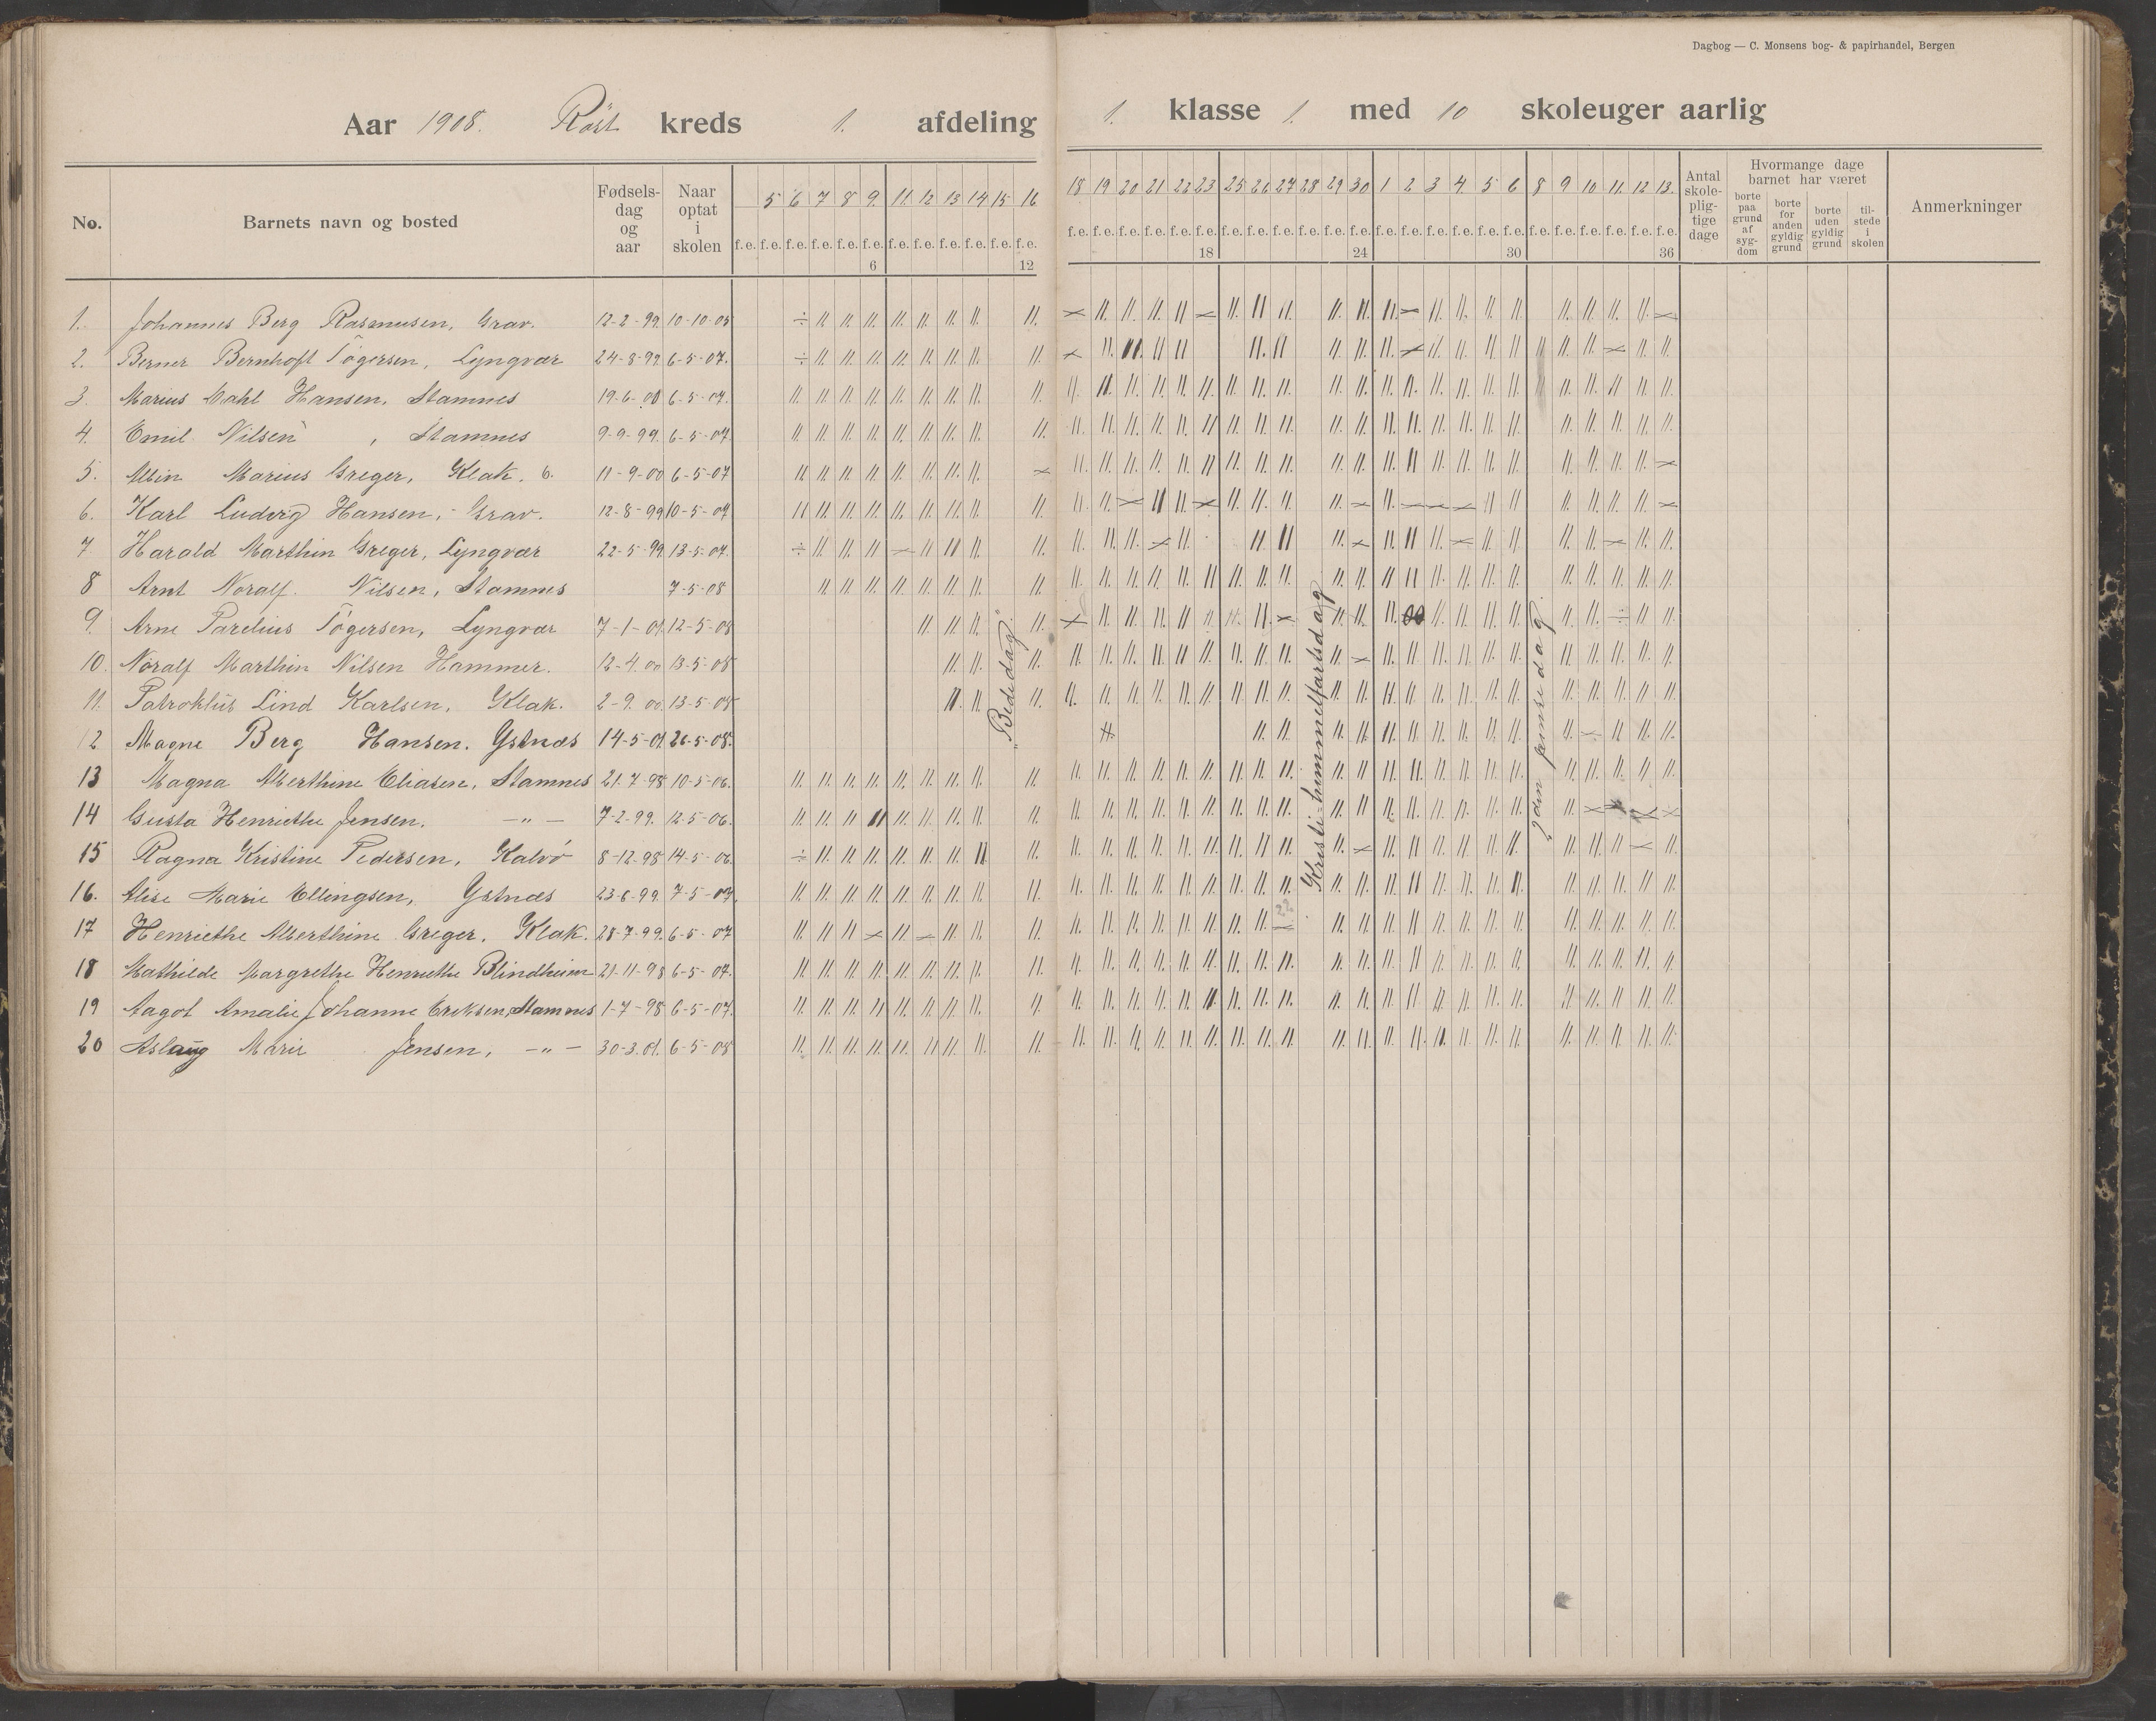 Dagbog — C. Monsens bog- & papirhandel, Bergen
Aar 1908. Röst kreds 1. afdeling 1. klasse 1. med 10 skoleuger aarlig
No. Barnets navn og bosted Fødsels-dag og aar Naar optat i skolen 5 6 7 8 9 11 12 13 14 15 16 18 19 20 21 22 23 25 26 27 28 29 30 1 2 3 4 5 6 8 9 10 11 12 13. Antal skole-plig-tige dage Hvormange dage barnet har været Anmerkninger
borte paa grund af syg-dom borte for anden gyldig grund borte uden gyldig grund til-stede i skolen
f.e. f.e. f.e. f.e. f.e. f.e. f.e. f.e. f.e. f.e. f.e. f.e. f.e. f.e. f.e. f.e. f.e. f.e. f.e. f.e. f.e. f.e. f.e. f.e. f.e. f.e. f.e. f.e. f.e. f.e. f.e. f.e. f.e. f.e. f.e. f.e.
6 12 18 24 30 36
1. Johannes Berg Rasmusen, Grav. 12-2-99 10-10-05
2. Berner Bernhoft Tögersen, Lyngvær 24-8-99 6-5-07.
3. Marius Dahl Hansen, Stamnes 19-6-00 6-5-07.
4. Emil Nilsen, Stamnes 9-9-99. 6-5-07.
5. Albin Marius Greger, Klak. 6. 11-9-00 6-5-07
6. Karl Ludvig Hansen, Grav. 12-8-99 10-5-07
7. Harald Marthin Greger, Lyngvær 22-5-99 13-5-07.
8 Arnt Noralf. Nilsen, Stamnes 7-5-08
9. Arne Parelius Tögersen, Lyngvær 7-1-01. 12-5-08
10. Noralf Marthin Nilsen Hammer. 12-4.00 13-5-08
11. Patroklus Lind Karlsen, Klak. 2-9.00. 13-5-08
12 Magne Berg Hansen. Ystnæs 14-5-01. 26-5-08.
13 Magna Alberthine Eliasen, Stamnes 21-7-98 10-5-06.
14 Gusta Henriethe Jensen. —"— 7-2-99. 12-5-06.
15 Ragna Kristine Pedersen, Kalvö 8-12-98 14-5-06.
16. Alise Marie Ellingsen, Ystnæs 23-6-99. 7-5-07.
17 Henriethe Alberthine Greger. Klak. 28-7-99. 6-5-07
18 Mathilde Margrethe Henriethe Blindheim 21-11-98 6-5-07.
19 Aagot Amalie Johanne Eriksen, Stamnes 1-7-98 6-5-07.
20 Aslaug Marie Jensen, —"— 30-3.01. 6-5-08
"Bededag"
Kristi-himmelfartsdag
2den pinsedag.
22